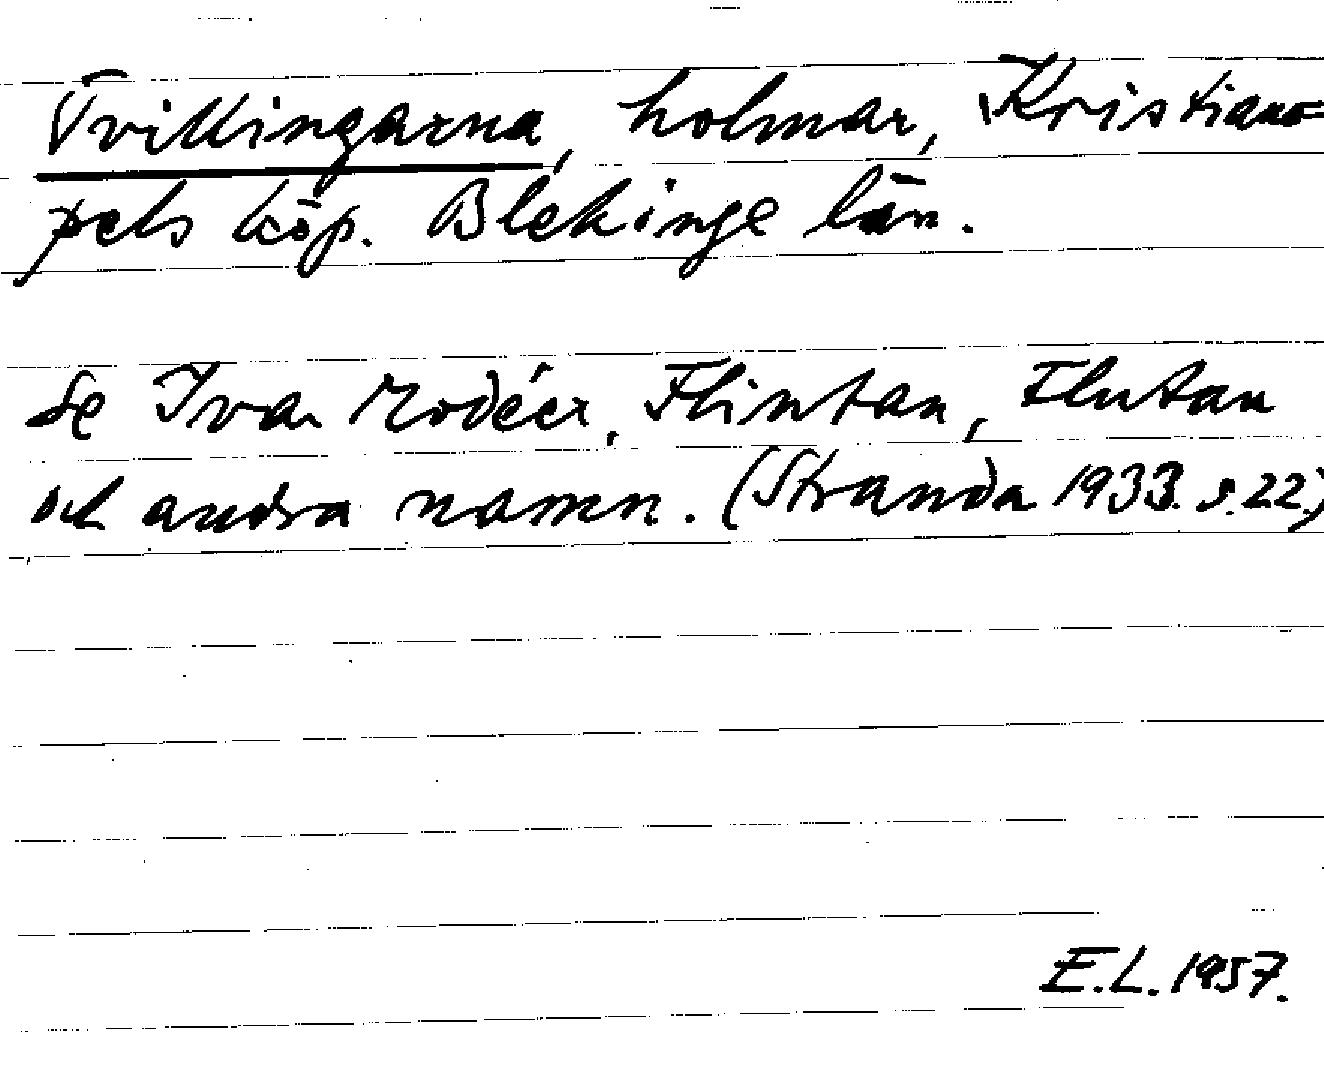 Tvillingarna, holmar, Kristiano-
pels köp. Blekinge län.
Se Ivar Modéer, Flintan, Flutan
och andra namn. (Stranda 1933. s. 22.)
E.L. 1957.